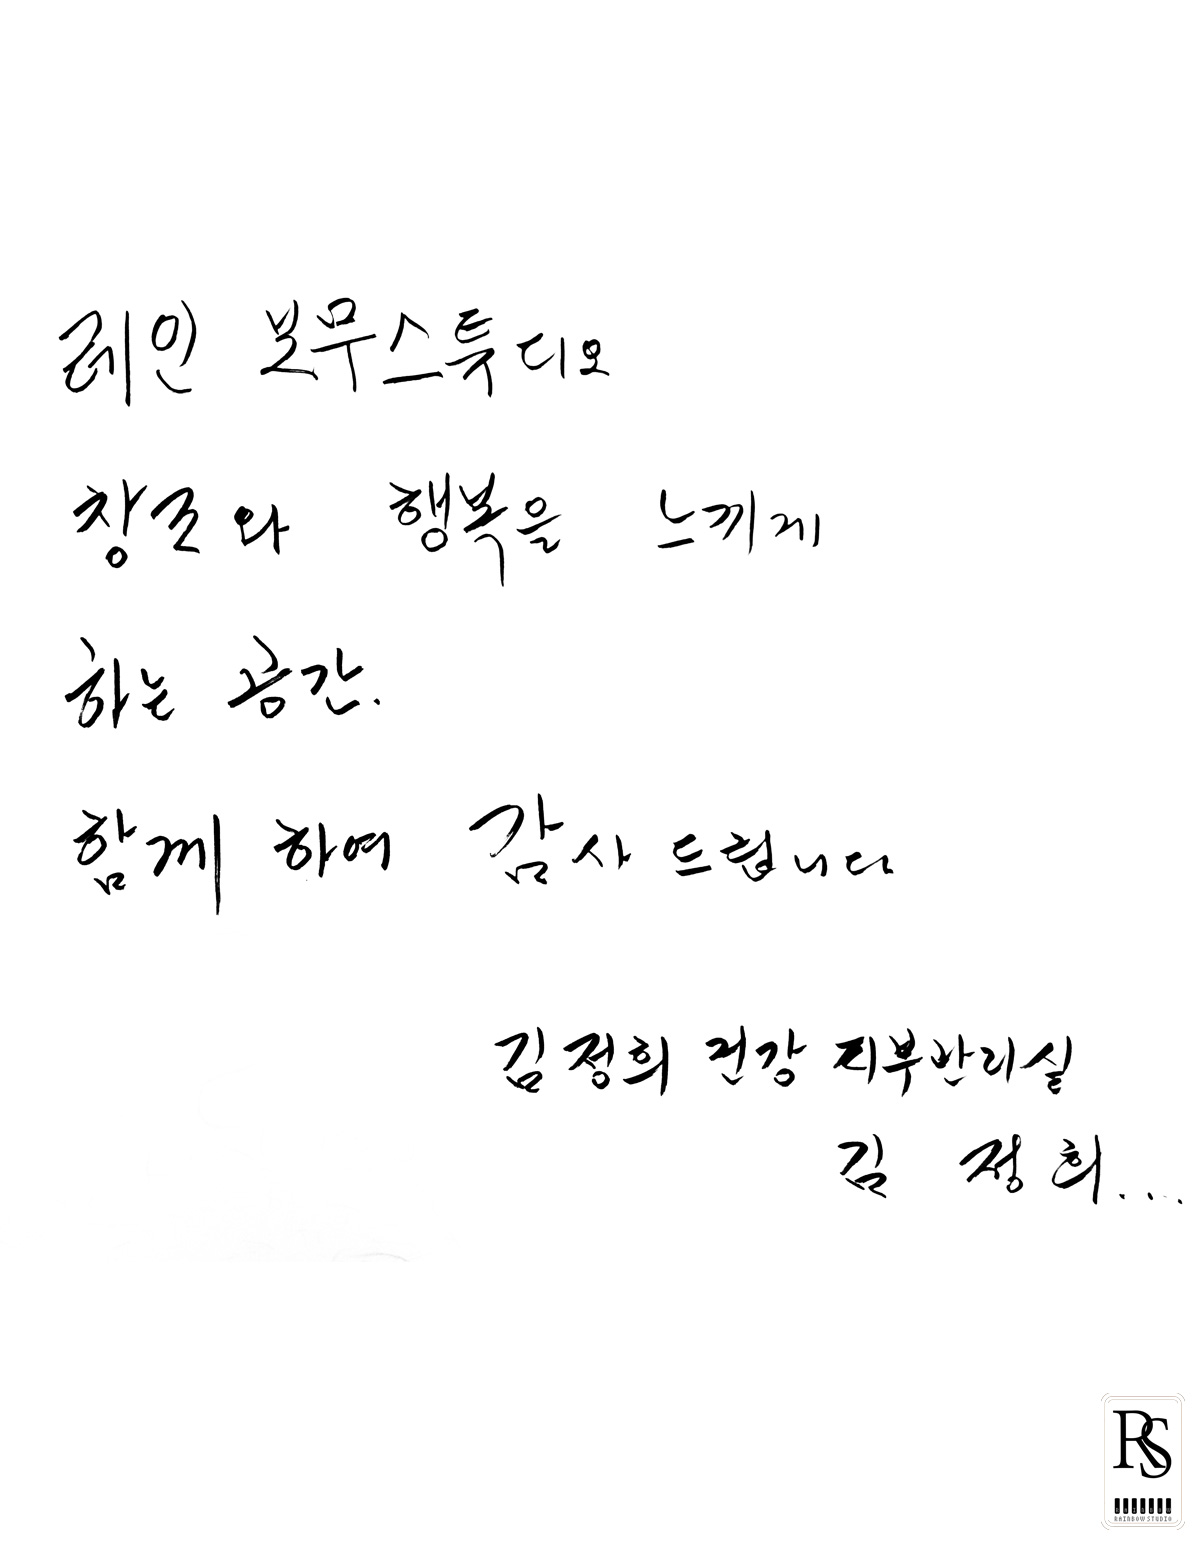 레인 보무스튝디오
창조와 행복을 느끼게
하는 공간.
함께 하여 감사 드립니다
김정희 건강 피부관리실
김 정 희....
RS
RAINBOW STUDIO